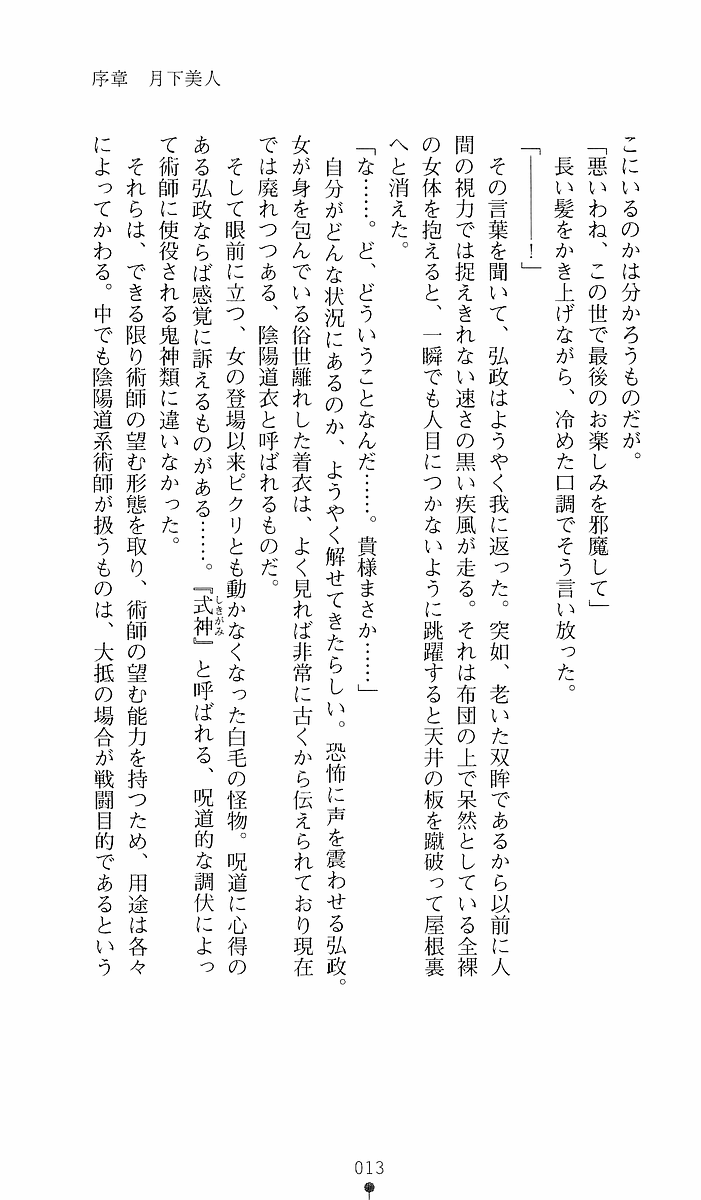 序章　月下美人
こにいるのかは分かろうものだが。
「悪いわね、この世で最後のお楽しみを邪魔して」
長い髪をかき上げながら、冷めた口調でそう言い放った。
「――――！」
その言葉を聞いて、弘政はようやく我に返った。突如、老いた双眸であるから以前に人
間の視力では捉えきれない速さの黒い疾風が走る。それは布団の上で呆然としている全裸
の女体を抱えると、一瞬でも人目につかないように跳躍すると天井の板を蹴破って屋根裏
へと消えた。
「な……。ど、どういうことなんだ……。貴様まさか……」
自分がどんな状況にあるのか、ようやく解せてきたらしい。恐怖に声を震わせる弘政。
女が身を包んでいる俗世離れした着衣は、よく見れば非常に古くから伝えられており現在
では廃れつつある、陰陽道衣と呼ばれるものだ。
そして眼前に立つ、女の登場以来ピクリとも動かなくなった白毛の怪物。呪道に心得の
ある弘政ならば感覚に訴えるものがある……。『式神』と呼ばれる、呪道的な調伏によっ
て術師に使役される鬼神類に違いなかった。
それらは、できる限り術師の望む形態を取り、術師の望む能力を持つため、用途は各々
によってかわる。中でも陰陽道系術師が扱うものは、大抵の場合が戦闘目的であるという
しきがみ
013